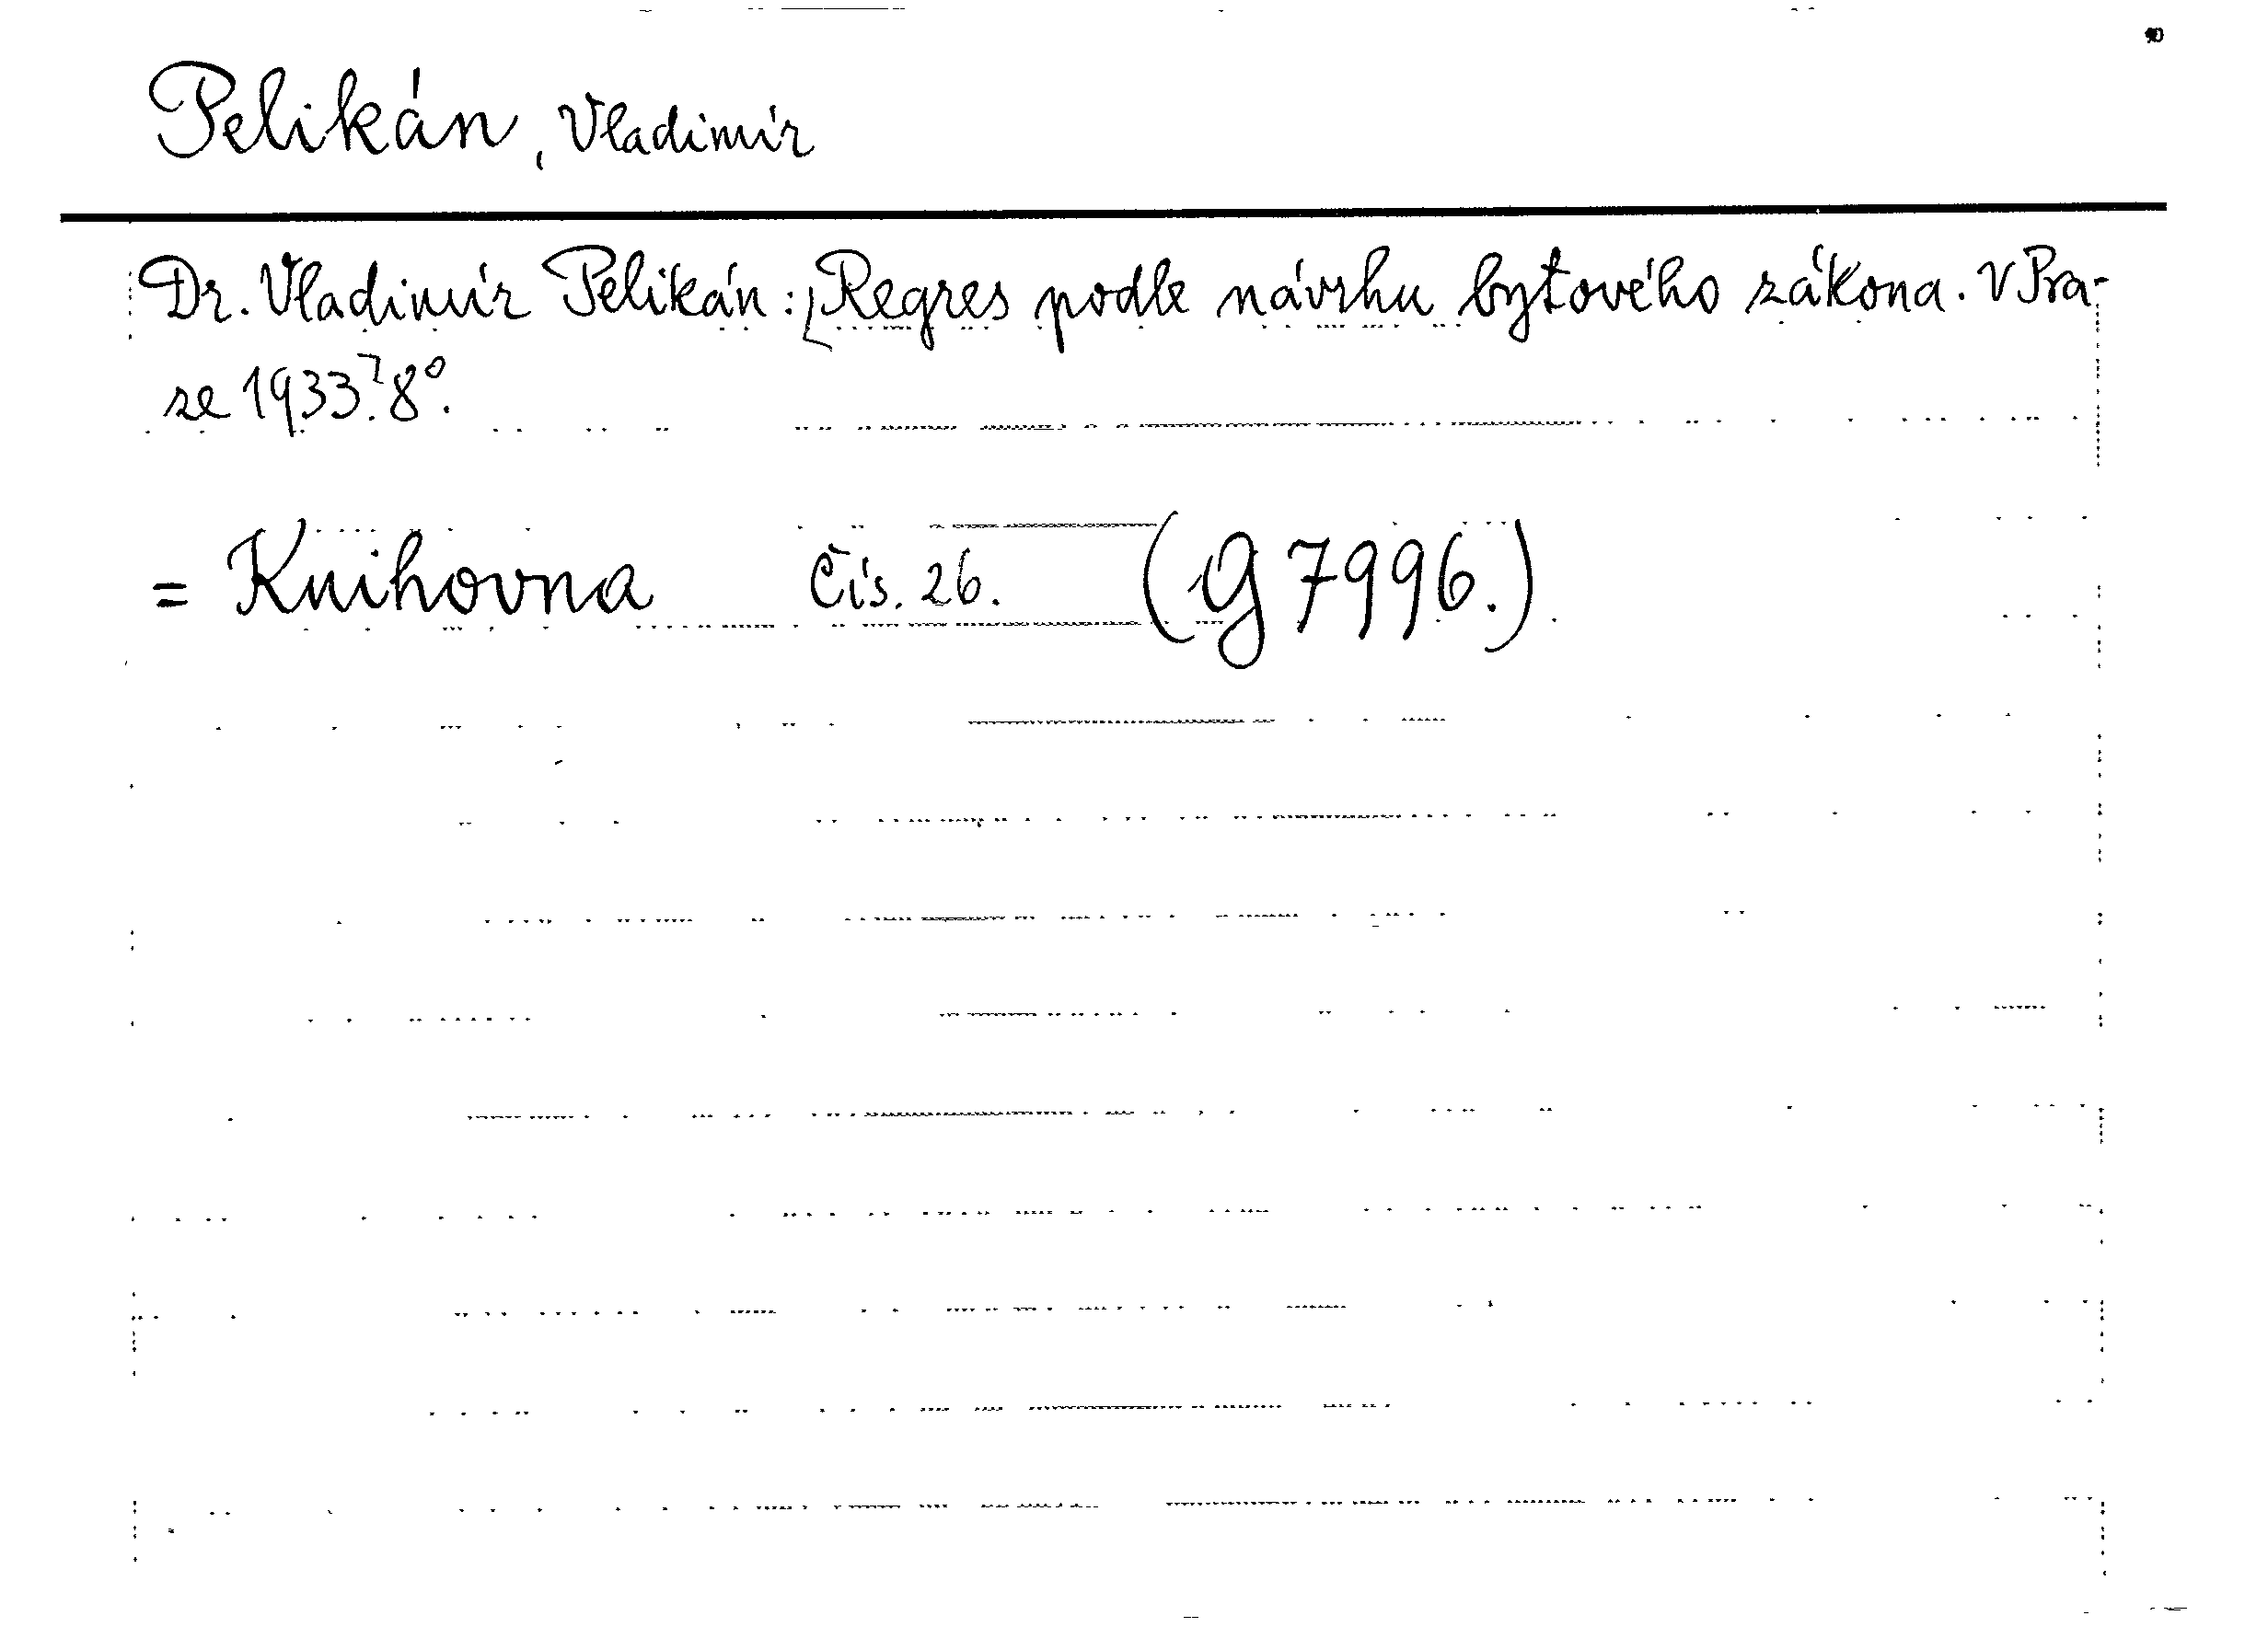 Pelikán, Vladimír
Dr. Vladimír Pelikán: [Regres podle návrhu bytového zákona. V Pra-
ze 1933.] 8°.
= Knihovna čís. 26. (G 7996.)